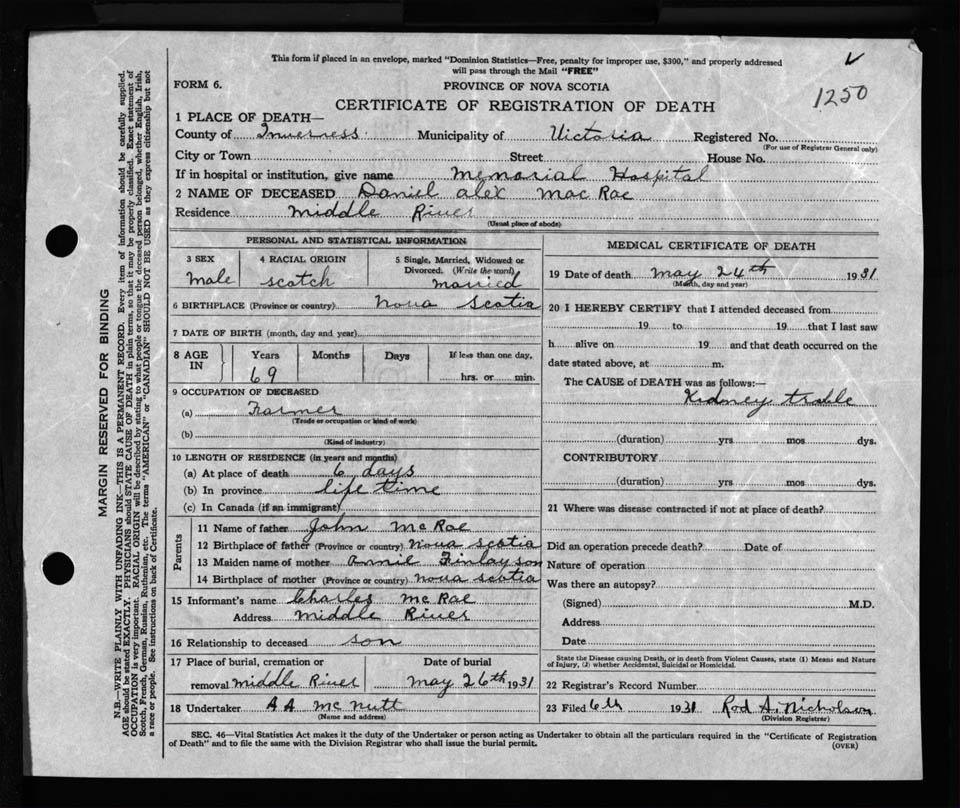 This form if placed in an envelope, marked "Dominion Statistics—Free, penalty for improper use, $300," and properly addressed
will pass through the Mail "FREE"
1250
FORM 6.
PROVINCE OF NOVA SCOTIA
CERTIFICATE OF REGISTRATION OF DEATH
1 PLACE OF DEATH—
County of Inverness Municipality of Victoria Registered No.
(For use of Registrar General only)
City or Town Street House No.
If in hospital or institution, give name Memorial Hospital
2 NAME OF DECEASED Daniel Alex Mac Rae
Residence Middle River
(Usual place of abode)
PERSONAL AND STATISTICAL INFORMATION
3 SEX
male
4 RACIAL ORIGIN
scotch
5 Single, Married, Widowed or
Divorced. (Write the word)
married
6 BIRTHPLACE (Province or country) Nova Scotia
7 DATE OF BIRTH (month, day and year)
8 AGE IN
Years Months Days If less than one day,
69 hrs. or min.
9 OCCUPATION OF DECEASED
(a) Farmer
(Trade or occupation or kind of work)
(b)
(Kind of industry)
10 LENGTH OF RESIDENCE (in years and months)
(a) At place of death 6 days
(b) In province life time
(c) In Canada (if an immigrant)
Parents
11 Name of father John McRae
12 Birthplace of father (Province or country) Nova Scotia
13 Maiden name of mother Annie Finlayson
14 Birthplace of mother (Province or country) Nova Scotia
15 Informant's name Charles McRae
Address Middle River
16 Relationship to deceased son
17 Place of burial, cremation or Date of burial
removal Middle River May 26th 1931
18 Undertaker A A McNutt
(Name and address)
MEDICAL CERTIFICATE OF DEATH
19 Date of death May 24th 1931
(Month, day and year)
20 I HEREBY CERTIFY that I attended deceased from
19 to 19 that I last saw
h alive on 19 and that death occurred on the
date stated above, at m.
The CAUSE of DEATH was as follows:—
Kidney trable
(duration) yrs mos dys.
CONTRIBUTORY
(duration) yrs mos dys.
21 Where was disease contracted if not at place of death?
Did an operation precede death? Date of
Nature of operation
Was there an autopsy?
(Signed) M.D.
Address
Date
State the Disease causing Death, or in death from Violent Causes, state (1) Means and Nature
of Injury, (2) whether Accidental, Suicidal or Homicidal.
22 Registrar's Record Number
23 Filed 6th 1931 Rod A. Nicholson
(Division Registrar)
SEC. 46—Vital Statistics Act makes it the duty of the Undertaker or person acting as Undertaker to obtain all the particulars required in the "Certificate of Registration
of Death" and to file the same with the Division Registrar who shall issue the burial permit.
(OVER)
MARGIN RESERVED FOR BINDING
N.B.—WRITE PLAINLY WITH UNFADING INK—THIS IS A PERMANENT RECORD. Every item of information should be carefully supplied.
AGE should be stated EXACTLY. PHYSICIANS should STATE CAUSE OF DEATH in plain terms, so that it may be properly classified. Exact statement of
OCCUPATION is very important. RACIAL ORIGIN will be described by stating to what people or tongue the deceased person belonged, whether English, Irish,
Scotch, French, German, Russian, Ruthenian, etc. The terms "AMERICAN" or "CANADIAN" SHOULD NOT BE USED as they express citizenship but not
a race or people. See instructions on back of Certificate.